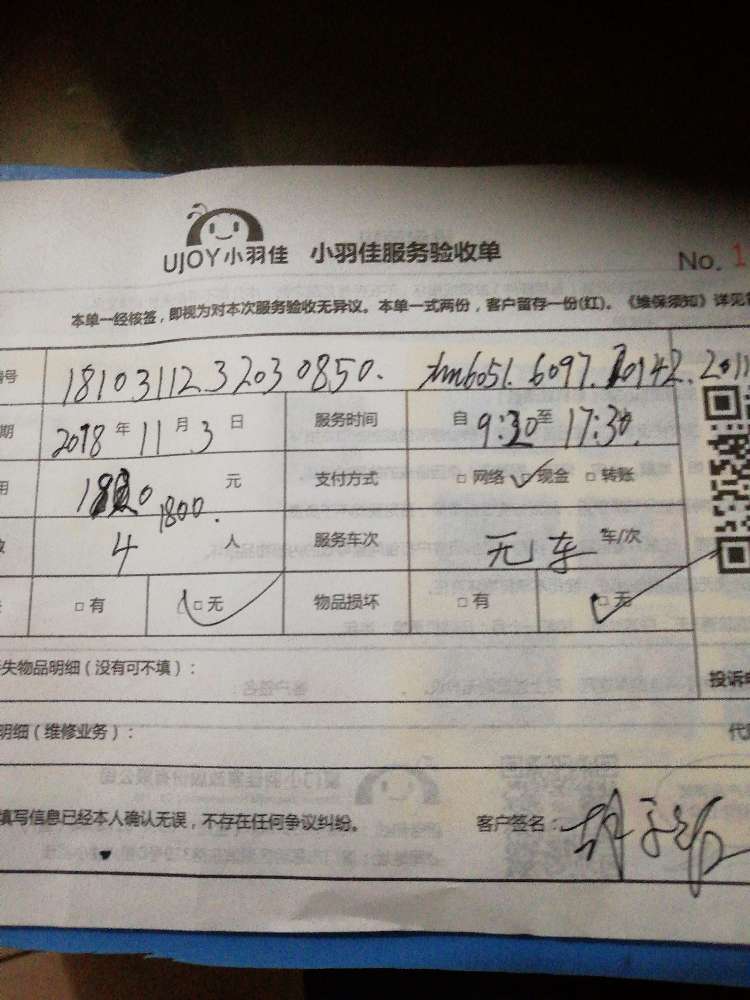 UJOY小羽佳 小羽佳服务验收单
No. 1
本单一经核签，即视为对本次服务验收无异议。本单一式两份，客户留存一份(红)。《维保须知》详见
号 18103112.32030850.
期 2018年11月3日 服务时间 自9:30至17:30
用 1800. 元 支付方式 □网络 □现金 □转账
数 4人 服务车次 无车 车/次
□有 □无 物品损坏 □有 □无
失物品明细（没有可不填）：
投诉
明细（维修业务）：
填写信息已经本人确认无误，不存在任何争议纠纷。 客户签名：